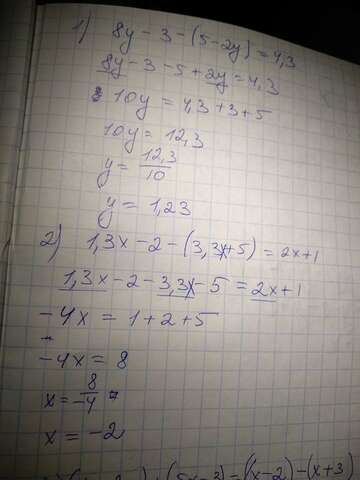 1) 8y - 3 - (5 - 2y) = 4,3
8y - 3 - 5 + 2y = 4,3
10y = 4,3 + 3 + 5
10y = 12,3
y = 12,3/10
y = 1,23
2) 1,3x - 2 - (3,3x + 5) = 2x + 1
1,3x - 2 - 3,3x - 5 = 2x + 1
-4x = 1 + 2 + 5
-4x = 8
x = 8/-4
x = -2
(5x - 3) = (x - 2) - (x + 3)